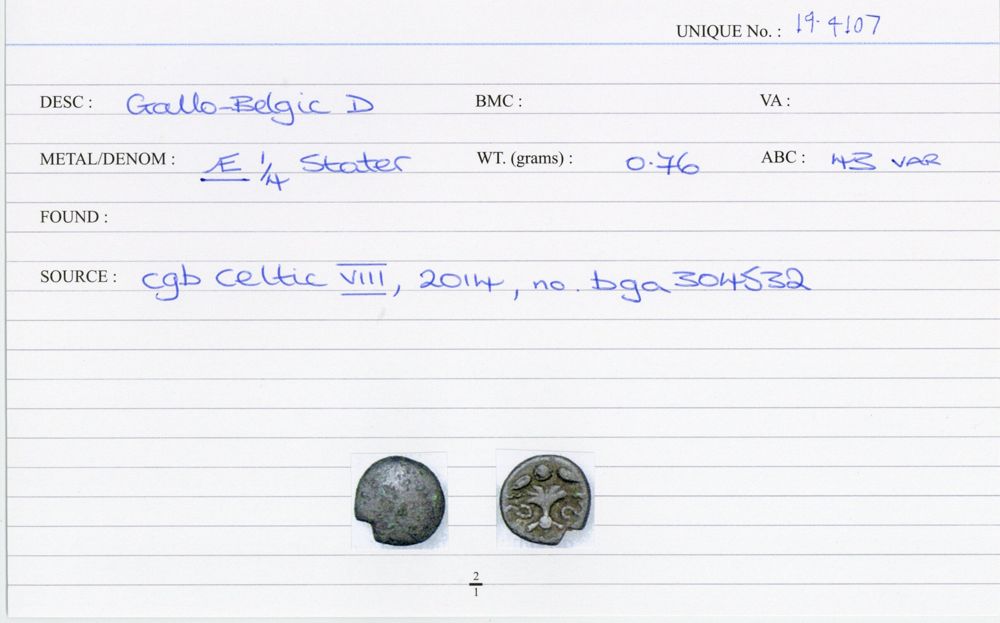 UNIQUE No. : 19.4107
DESC : Gallo-Belgic D BMC : VA :
METAL/DENOM : Æ 1/4 Stater WT. (grams) : 0.76 ABC : 43 VAR
FOUND :
SOURCE : cgb Celtic VIII, 2014, no. bga 304532
2/1